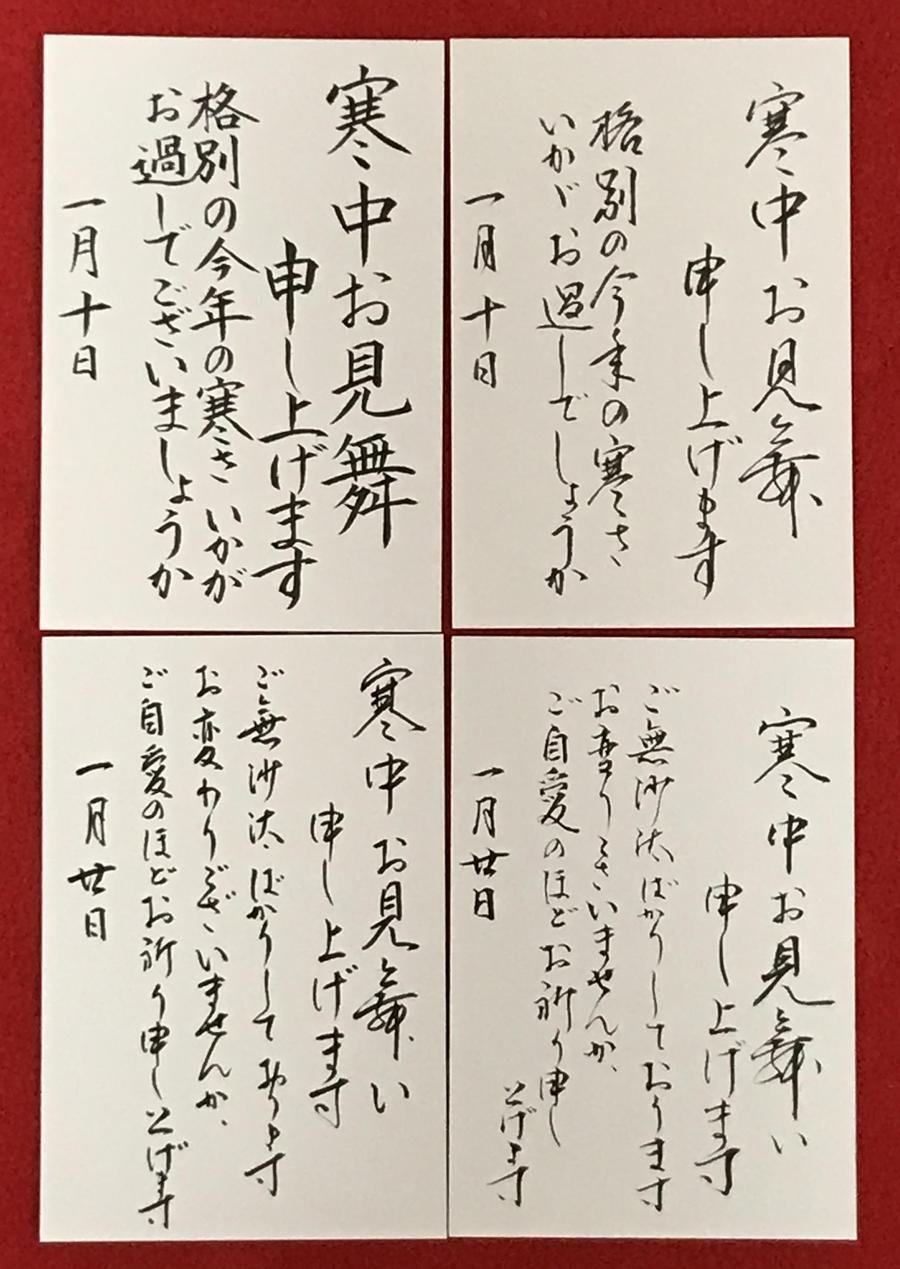 寒中お見舞
申し上げます
格別の今年の寒さ
いかゞお過しでしょうか
一月十日
寒中お見舞
申し上げます
格別の今年の寒さ いかが
お過しでございましょうか
一月十日
寒中お見舞い
申し上げます
ご無沙汰ばかりしております
お変りございませんか、
ご自愛のほどお祈り申し
上げます
一月廿日
寒中お見舞い
申し上げます
ご無沙汰ばかりしております
お変わりございませんか、
ご自愛のほどお祈り申し上げます
一月廿日